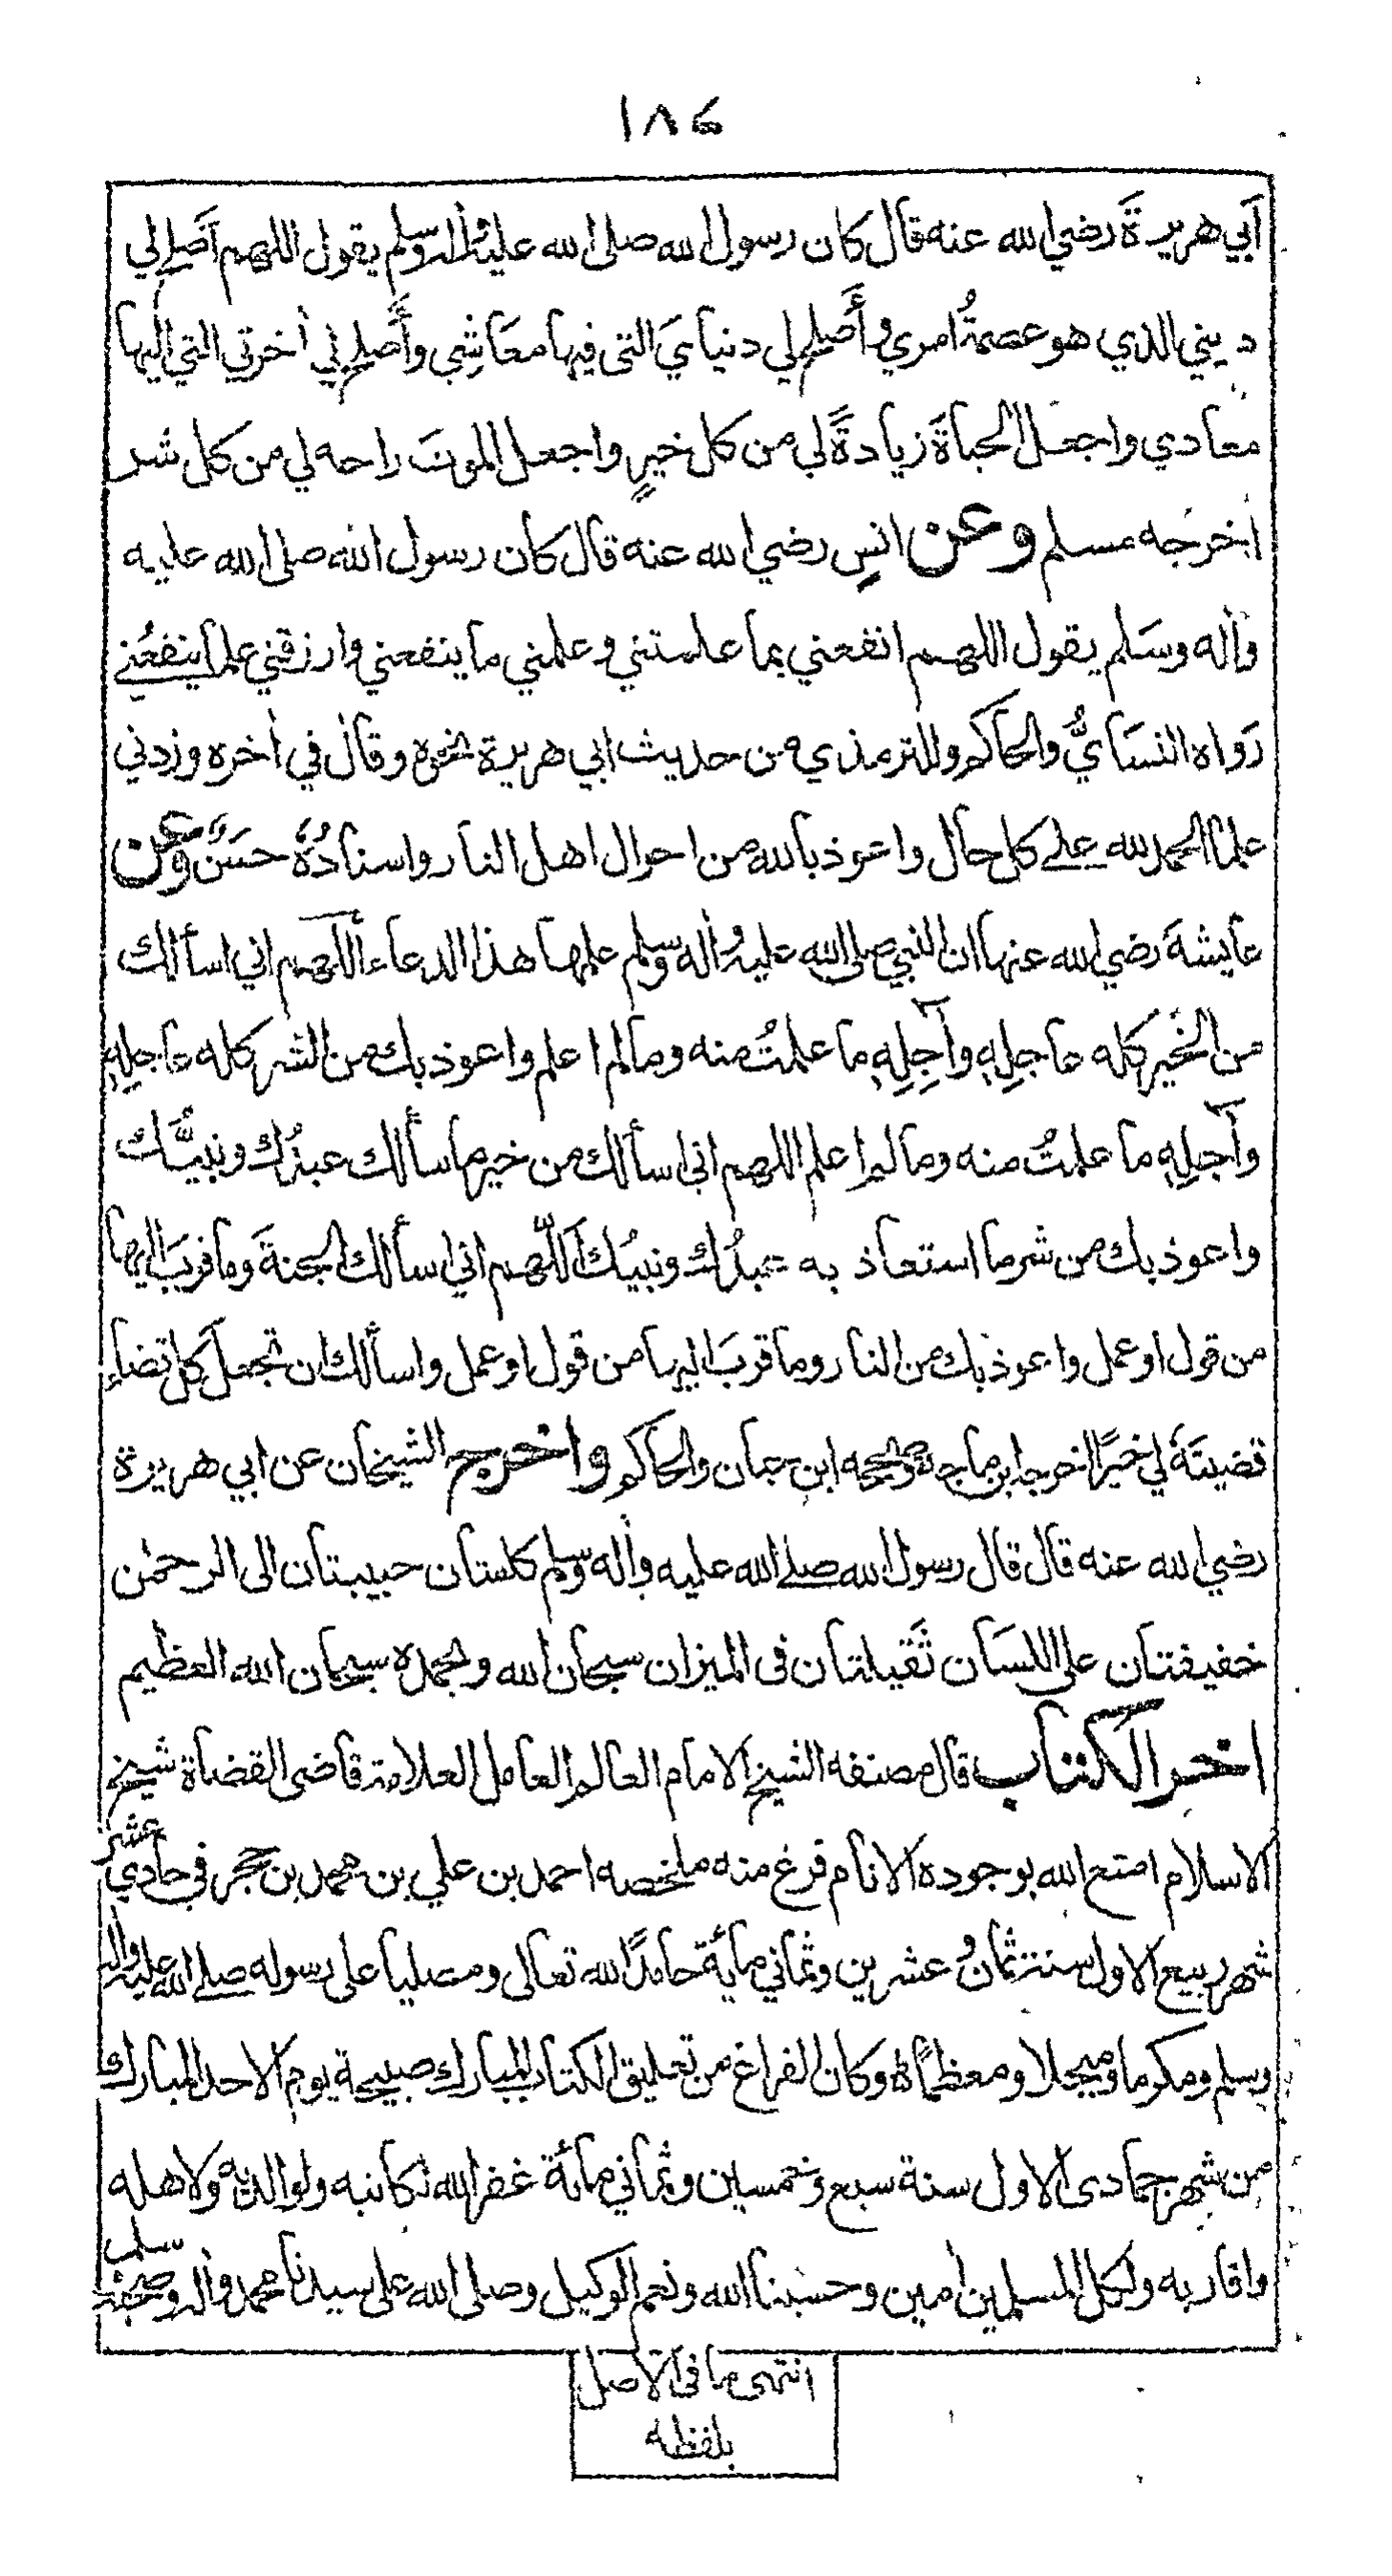 ١٨٦
أبي هريرة رضي الله عنه قال كان رسول الله صلى الله عليه وآله وسلم يقول اللهم أَصلح لي
ديني الذي هو عصمةُ امري وأَصلح لي دنيايَ التي فيها معَاشِي وأَصلح لي أخرتي التي اليها
معادي واجعل الحياةَ زيادةً لي من كل خيرٍ واجعل الموتَ راحه لي من كل شر
اخرجه مسلم وعن انسٍ رضي الله عنه قال كان رسول الله صلى الله عليه
وأله وسَلم يقول اللهم انفعني بما علمتني وعلمني ما ينفعني وارزقني علما ينفعُني
رَواه النسَايُّ والحاكم وللترمذي من حديث ابي هريرة نحوه وقال في أخره وزدني
علما الحمد لله على كل حال واعوذ بالله من احوال اهل النار واسنادُهُ حسَنٌ وعن
عايشةَ رضي الله عنها ان النبي صلى الله عليه وأله وسلم علمها هذا الدعاء أللهم اني اسألك
من الخير كله عاجلِهِ وآجِلِهِ ما علمتُ منه وما لم اعلم واعوذ بك من الشر كله عاجلِهِ
وآجلِهِ ما علمتُ منه وما لم اعلم اللهم اني اسألك من خير ما سألك عبدُك ونبيُّك
واعوذ بك من شر ما استعاذ به عبدُك ونبيُك اَللّهم اني اسألك الجنةَ وما قربَ اليها
من قول او عمل واعوذ بك من النار وما قربَ اليها من قول او عمل واسألك ان تجعل كل قضاءٍ
قضيتَهُ لي خيرًا اخرجه ابن ماجه وصححه ابن حبان والحاكم واخرج الشيخان عن ابي هريرة
رضي الله عنه قال قال رسول الله صلى الله عليه وأله وسلم كلمتان حبيبتان الى الرحمٰن
خفيفتان على اللسَان ثَقيلتان فى الميزان سبحان الله وبحمده سبحان الله العظيم
اخر الكتاب قال مصنفه الشيخ الامام العالم العامل العلامة قاضى القضاة شيخ
الاسلام امتع الله بوجوده الانام فرغ منه ملخصه احمد بن علي بن محمد بن حجر في حادي عشر
شهر ربيع الاول سنة ثمان وعشرين وثماني مأية حامدًا لله تعالى ومصليا على رسوله صلى الله عليه وأله
وسلم ومكرما ومبجلا ومعظمًا وكان الفراغ من تعليق الكتاب المبارك صبيحة يوم الاحد المبارك
من شهر جمادى الاول سنة سبع وخمسين وثماني مأئة غفر الله لكاتبه ولوالديه ولاهله
واقاربه ولكل المسلمين أمين وحسْبنا الله ونعم الوكيل وصلى الله على سيدنا محمد وأله وصحبه وسلم
انتهى ما في الاصل
بلفظه